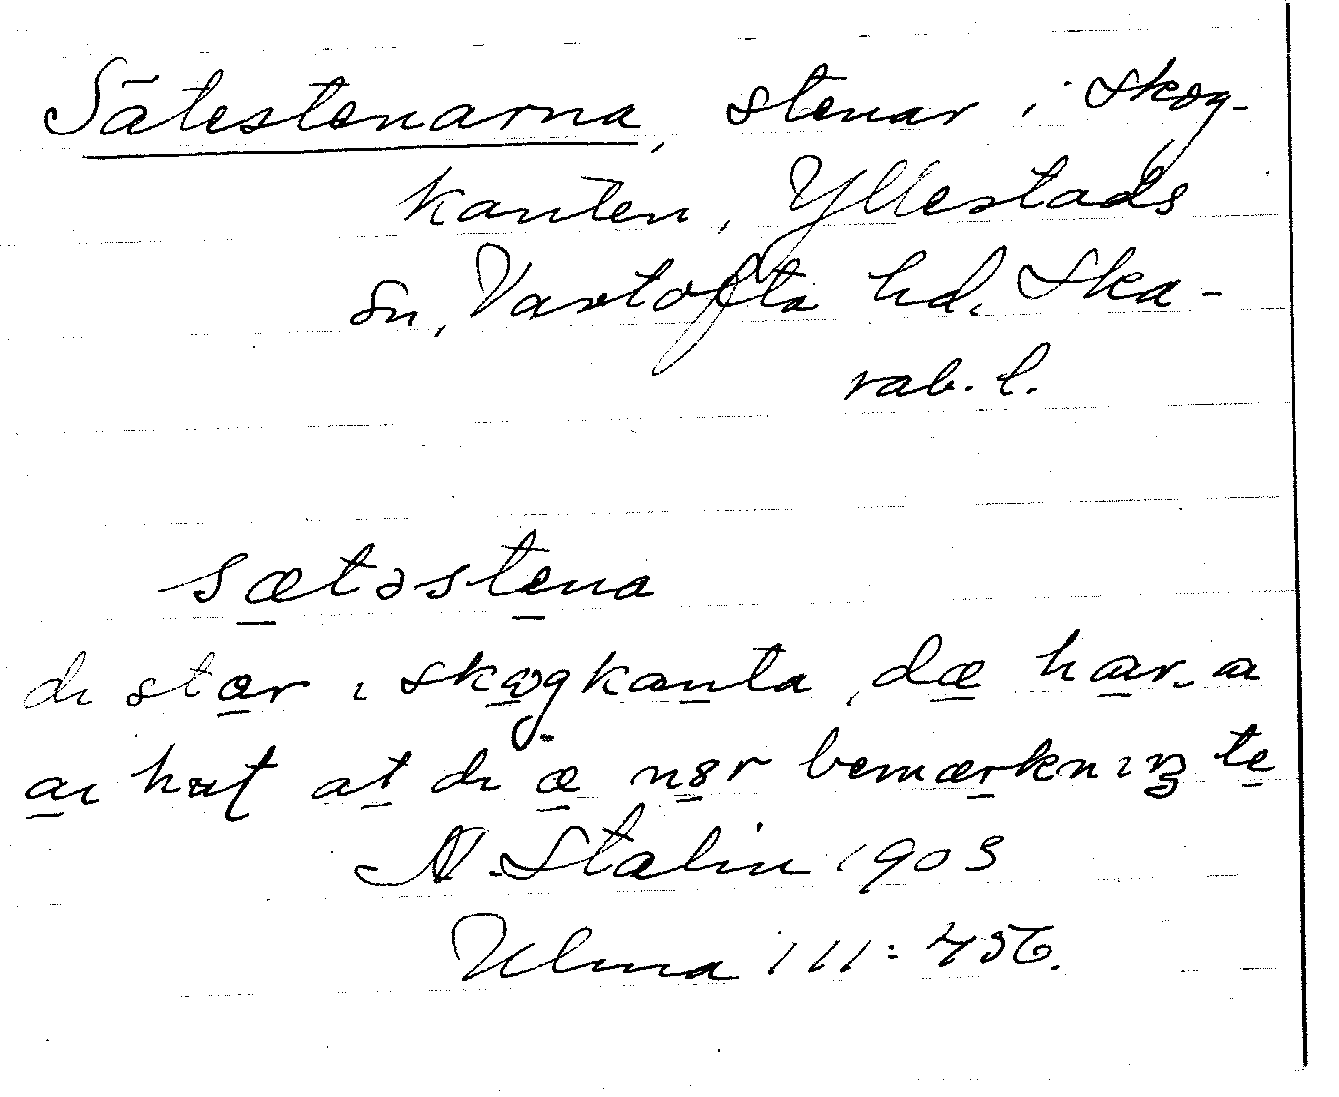 Sätestenarna, stenar i skog-
kanten, Yllestads
sn, Vartofta hd, Ska-
rab. l.
sætəstena
di stær i skogkanta, dæ har a
ai hut at di æ nør bemærkniŋ te
N. Stalin 1903
Ulma 111:456.